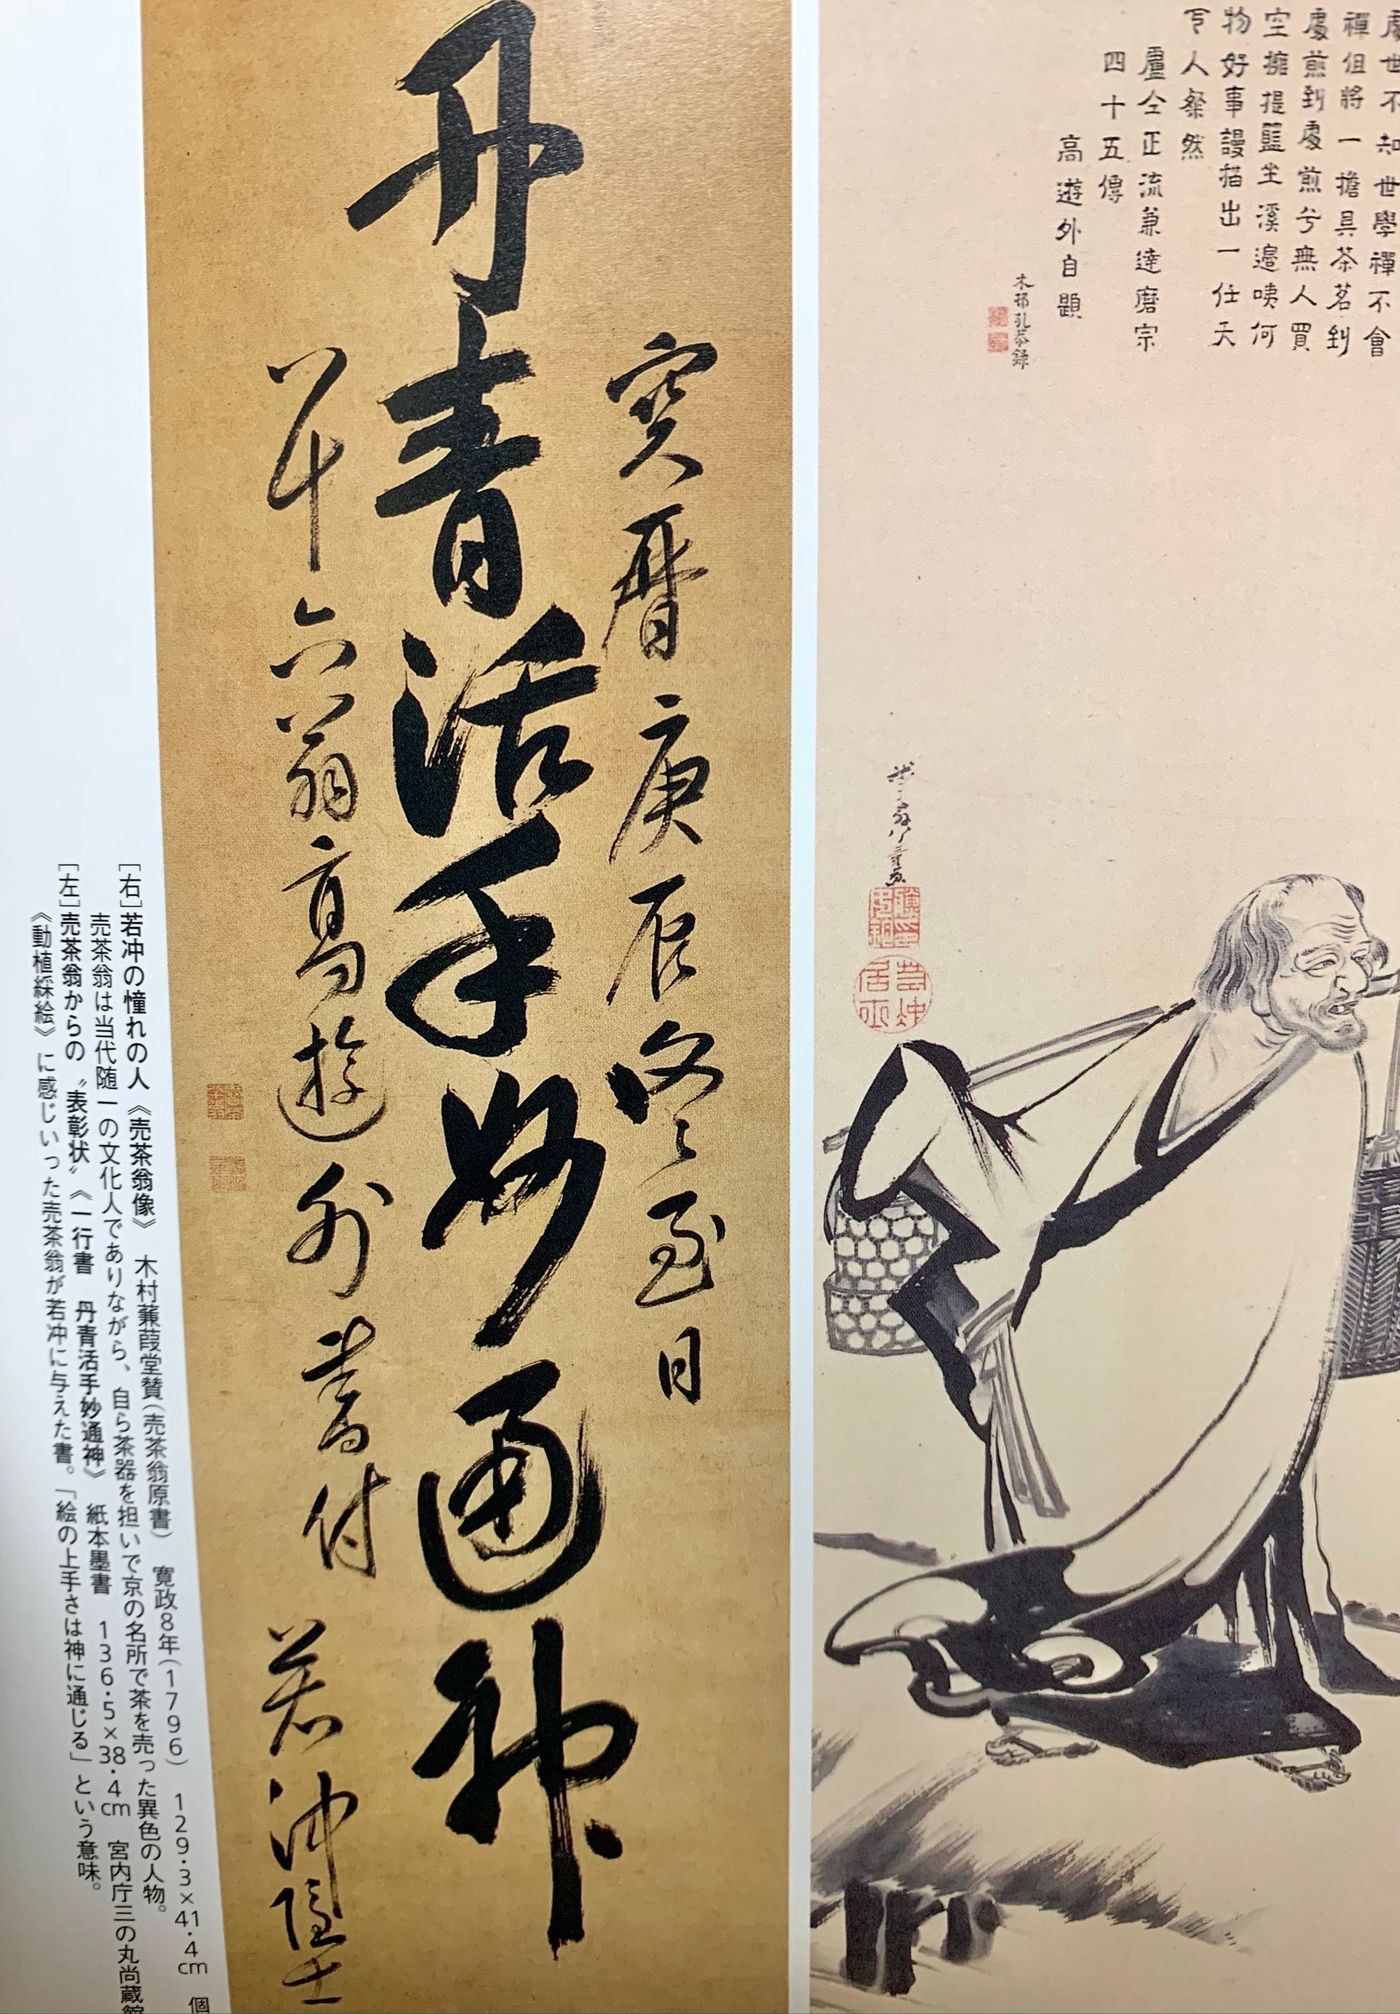 處世不知世學禪不會
禪但將一擔具茶茗到
處煎到處煎兮無人買
空擁提籃坐溪邊咦何
物好事謾描出一任天
下人粲然
盧仝正流兼達磨宗
四十五傳
高遊外自題
木邨孔恭録
寶暦庚辰冬至日
丹青活手妙通神
八十六翁高遊外書付
若冲隠士
［右］若冲の憧れの人《売茶翁像》　木村蒹葭堂賛（売茶翁原書）　寛政8年（1796）　129・3×41・4cm　個
売茶翁は当代随一の文化人でありながら、自ら茶器を担いで京の名所で茶を売った異色の人物。
［左］売茶翁からの〝表彰状〟《一行書　丹青活手妙通神》　紙本墨書　136・5×38・4cm　宮内庁三の丸尚蔵館
《動植綵絵》に感じいった売茶翁が若冲に与えた書。「絵の上手さは神に通じる」という意味。